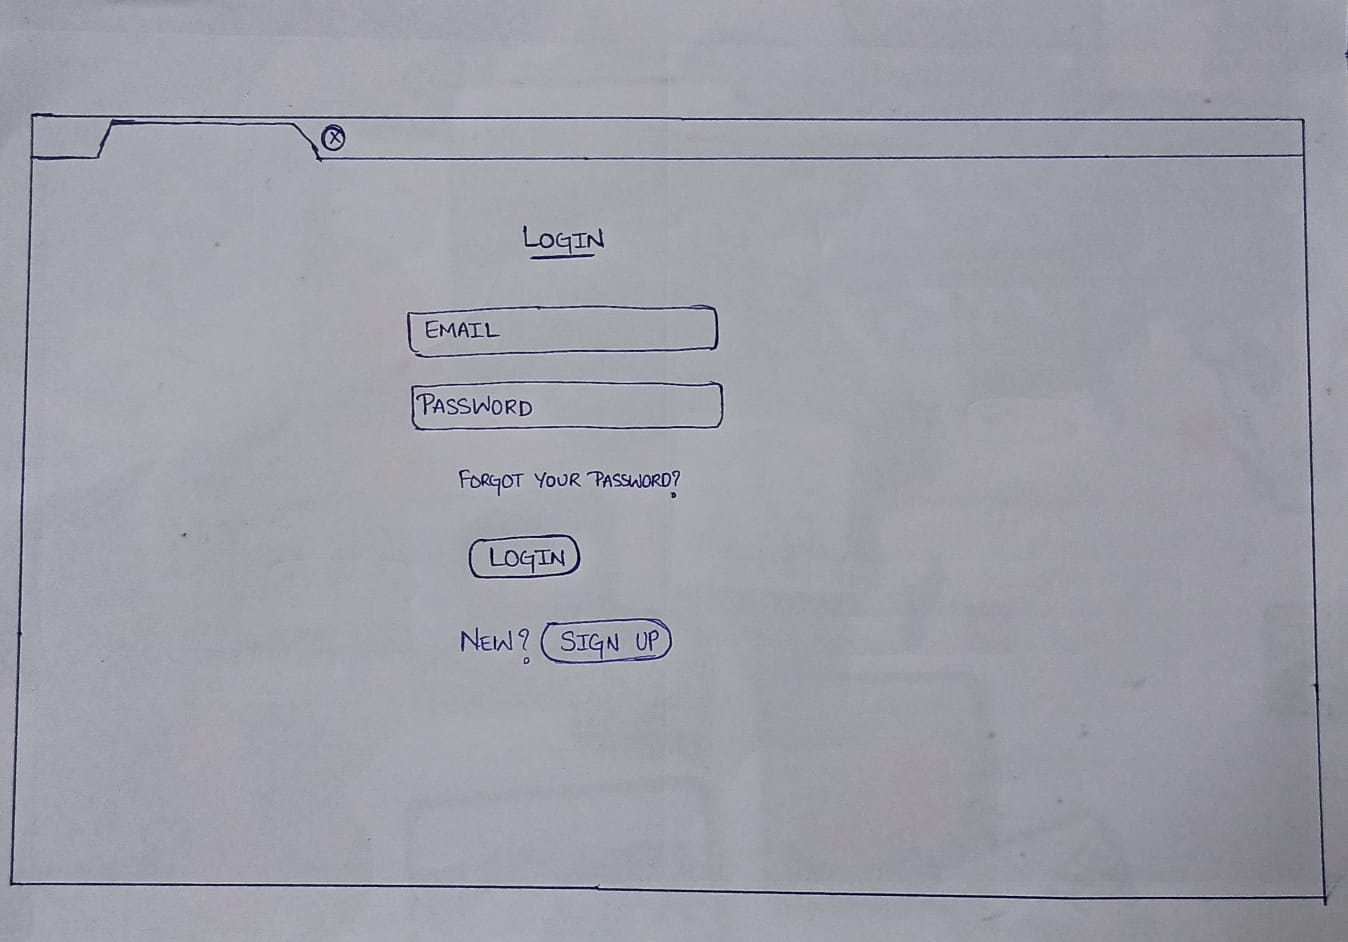 ⓧ
LOGIN
EMAIL
PASSWORD
FORGOT YOUR PASSWORD?
LOGIN
NEW? SIGN UP